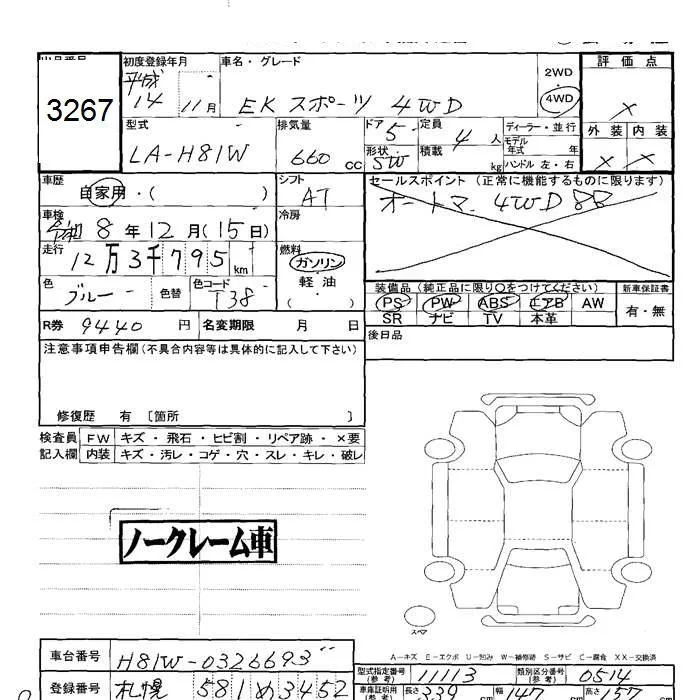 3267
初度登録年月
平成
14
11月
車名・グレード
EK スポーツ 4WD
2WD
4WD
評価点
×
外装 内装
× ×
型式
LA-H81W
排気量
660 cc
ドア 5
形状 SW
定員 4 人
積載 kg
ディーラー・並行
モデル年式 年
ハンドル 左・右
車歴
自家用・( )
シフト
AT
セールスポイント (正常に機能するものに限ります)
オートマ 4WD 88
車検
令和 8年12月(15日)
冷房
走行
12万3千795km
燃料
ガソリン
軽油
( )
色
ブルー
色替
色コード
T38
装備品 (純正品に限り○をつけてください)
PS PW ABS エアB AW
SR ナビ TV 本革
新車保証書
有・無
R券 9440 円
名変期限 月 日
後日品
注意事項申告欄(不具合内容等は具体的に記入して下さい)
修復歴 有 〔箇所 〕
検査員記入欄
FW キズ・飛石・ヒビ割・リペア跡・×要
内装 キズ・汚レ・コゲ・穴・スレ・キレ・破レ
ノークレーム車
スペア
A-キズ E-エクボ U-凹み W-補修跡 S-サビ C-腐食 XX-交換済
車台番号 H81W-0326693
型式指定番号(参考) 11113
類別区分番号(参考) 0514
登録番号 札幌 581 め 3452
車庫証明用(参考) 長さ 339 cm 幅 147 cm 高さ 157 cm